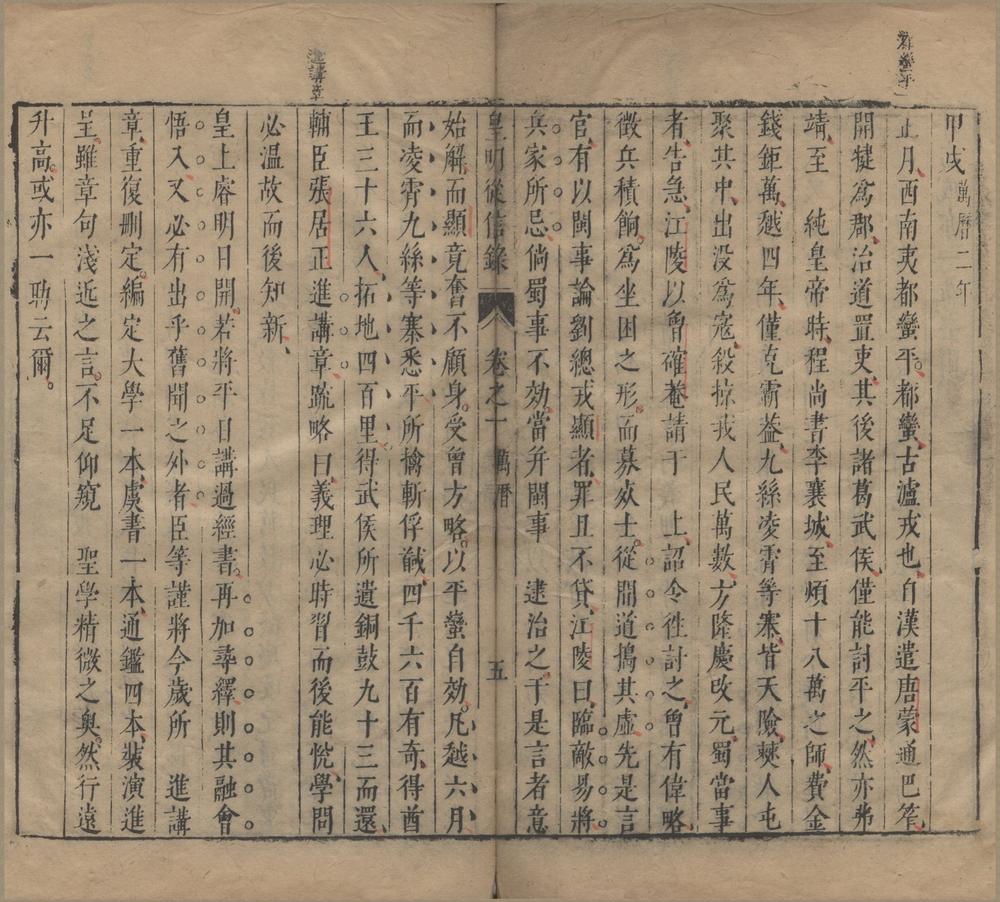 都蠻平
甲戌萬曆二年
正月、西南夷都蠻平。都蠻、古瀘戎也、自漢遣唐蒙通巴笮、
開犍爲郡、治道置吏、其後諸葛武侯、僅能討平之、然亦弗
靖、至　純皇帝時、程尚書李襄城、至煩十八萬之師、費金
錢鉅萬、越四年、僅克霸葢、九絲凌霄等寨、皆天險、僰人屯
聚其中、出没爲寇、殺掠我人民萬數、方隆慶改元、蜀當事
者、告急、江陵以曾確菴請于　上、詔令徃討之、曾有偉略、
徵兵積餉、爲坐困之形、而募死士、從間道搗其虛、先是言
官、有以閩事論劉總戎顯者、罪且不貸、江陵曰、臨敵易將、
兵家所忌、倘蜀事不効、當并閩事　逮治之、于是言者意
皇明從信錄　卷之一　萬曆　五
始解、而顯竟奮不顧身、受曾方略、以平蠻自効。凡越六月、
而凌霄九絲等寨悉平、所擒斬俘馘、四千六百有奇、得酋
王三十六人、拓地四百里、得武侯所遺銅鼓九十三而還、
進講章
輔臣張居正進講章、䟽略曰、義理必時習而後能悅、學問
必温故而後知新、
皇上睿明日開、若將平日講過經書、再加尋繹、則其融會
悟入、又必有出乎舊聞之外者、臣等謹將今歲所　進講
章、重復刪定、編定大學一本、虞書一本、通鑑四本、裝演進
呈、雖章句淺近之言、不足仰窺　聖學精微之奧、然行遠
升高、或亦一助云爾。